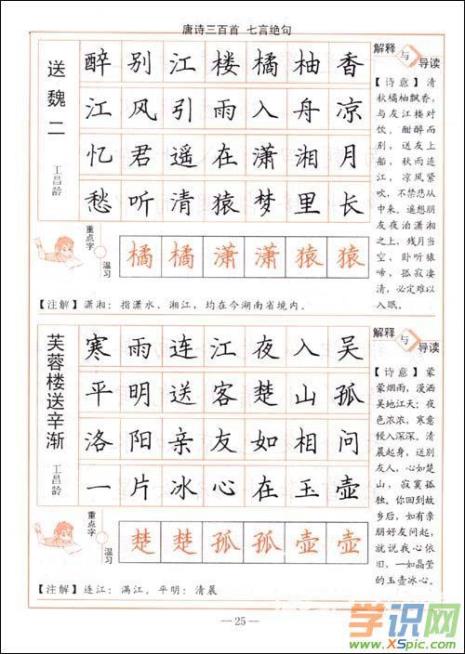 唐诗三百首 七言绝句
送魏二
王昌龄
醉别江楼橘柚香
江风引雨入舟凉
忆君遥在潇湘月
愁听清猿梦里长
重点字
温习
橘橘潇潇猿猿
【注解】潇湘：指潇水、湘江，均在今湖南省境内。
解释与导读
【诗意】清
秋橘柚飘香，
与友江楼对
饮，酣醉而
别，送友上
船，秋雨连
江，凉风紧
吹，不禁悲从
中来。遥想朋
友夜泊潇湘
之上，残月当
空，卧听猿
啼，孤寂凄
清，必定难以
入眠。
芙蓉楼送辛渐
王昌龄
寒雨连江夜入吴
平明送客楚山孤
洛阳亲友如相问
一片冰心在玉壶
重点字
温习
楚楚孤孤壶壶
【注解】连江：满江，平明：清晨
解释与导读
【诗意】蒙
蒙烟雨，漫洒
吴地江天；夜
色浓浓，寒意
侵入深深。清
晨起身，送别
友人，心如楚
山，寂寞孤
独。你回到故
乡后，如有亲
朋好友问起，
就说我心依
旧，一如晶莹
的玉壶冰心。
—25—
学识网
www.XSpic.com